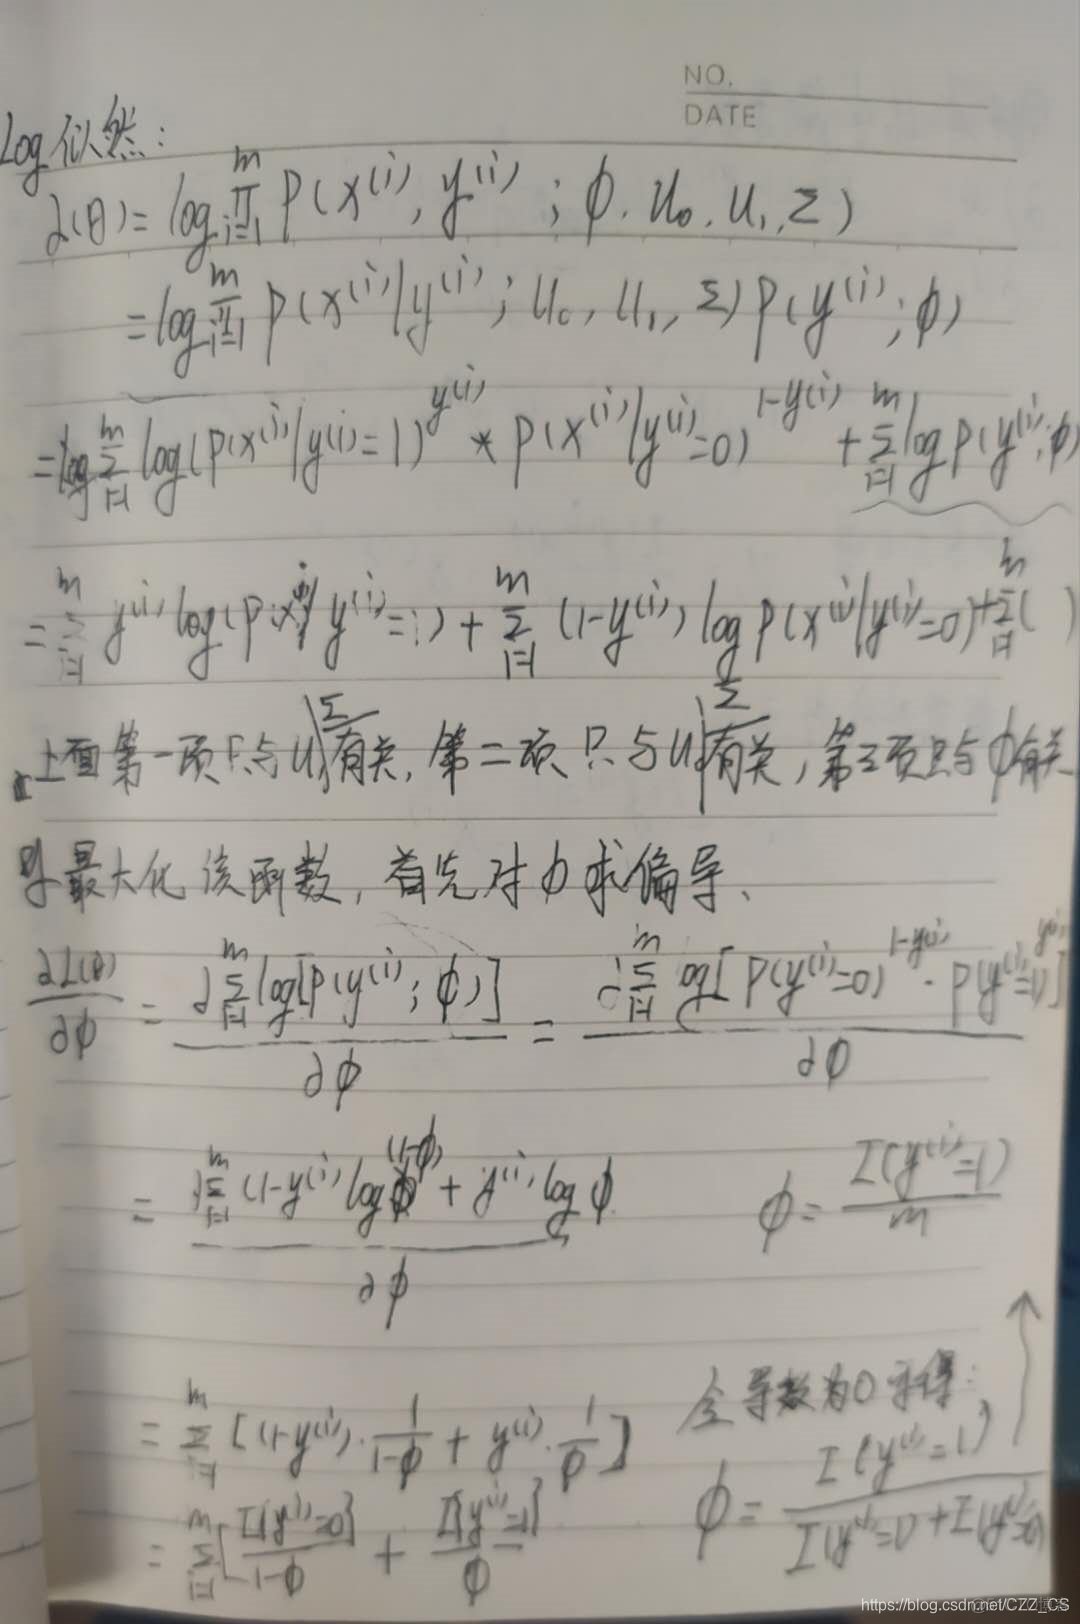 NO.
DATE
Log似然:
L(θ) = log ∏_{i=1}^{m} P(x^{(i)}, y^{(i)}; φ, u_0, u_1, Σ)
= log ∏_{i=1}^{m} P(x^{(i)}|y^{(i)}; u_0, u_1, Σ) P(y^{(i)}; φ)
= Σ_{i=1}^{m} log(P(x^{(i)}|y^{(i)}=1)^{y^{(i)}} * P(x^{(i)}|y^{(i)}=0)^{1-y^{(i)}} + Σ_{i=1}^{m} log P(y^{(i)}; φ)
= Σ_{i=1}^{m} y^{(i)} log(P(x^{(i)}|y^{(i)}=1) + Σ_{i=1}^{m} (1-y^{(i)}) log P(x^{(i)}|y^{(i)}=0) + Σ_{i=1}^{m} ( )
上面第一项只与u_1,Σ有关,第二项只与u_0,Σ有关,第三项只与φ有关
最大化该函数,首先对φ求偏导、
∂L(θ)/∂φ = ∂Σ_{i=1}^{m} log[P(y^{(i)}; φ)]/∂φ = ∂Σ_{i=1}^{m} log[P(y^{(i)}=0)^{1-y^{(i)}} · P(y^{(i)}=1)^{y^{(i)}}]/∂φ
= ∂Σ_{i=1}^{m} (1-y^{(i)} log(1-φ) + y^{(i)} log φ/∂φ
φ = I(y^{(i)}=1)/m
= Σ_{i=1}^{m} [(1-y^{(i)}) · 1/(1-φ) + y^{(i)} · 1/φ]
令导数为0求得:
= Σ_{i=1}^{m} [I{y^{(i)}=0}/(1-φ) + I{y^{(i)}=1}/φ
φ = I(y^{(i)}=1)/(I(y^{(i)}=1) + I(y^{(i)}=0))
https://blog.csdn.net/CZZ_CS